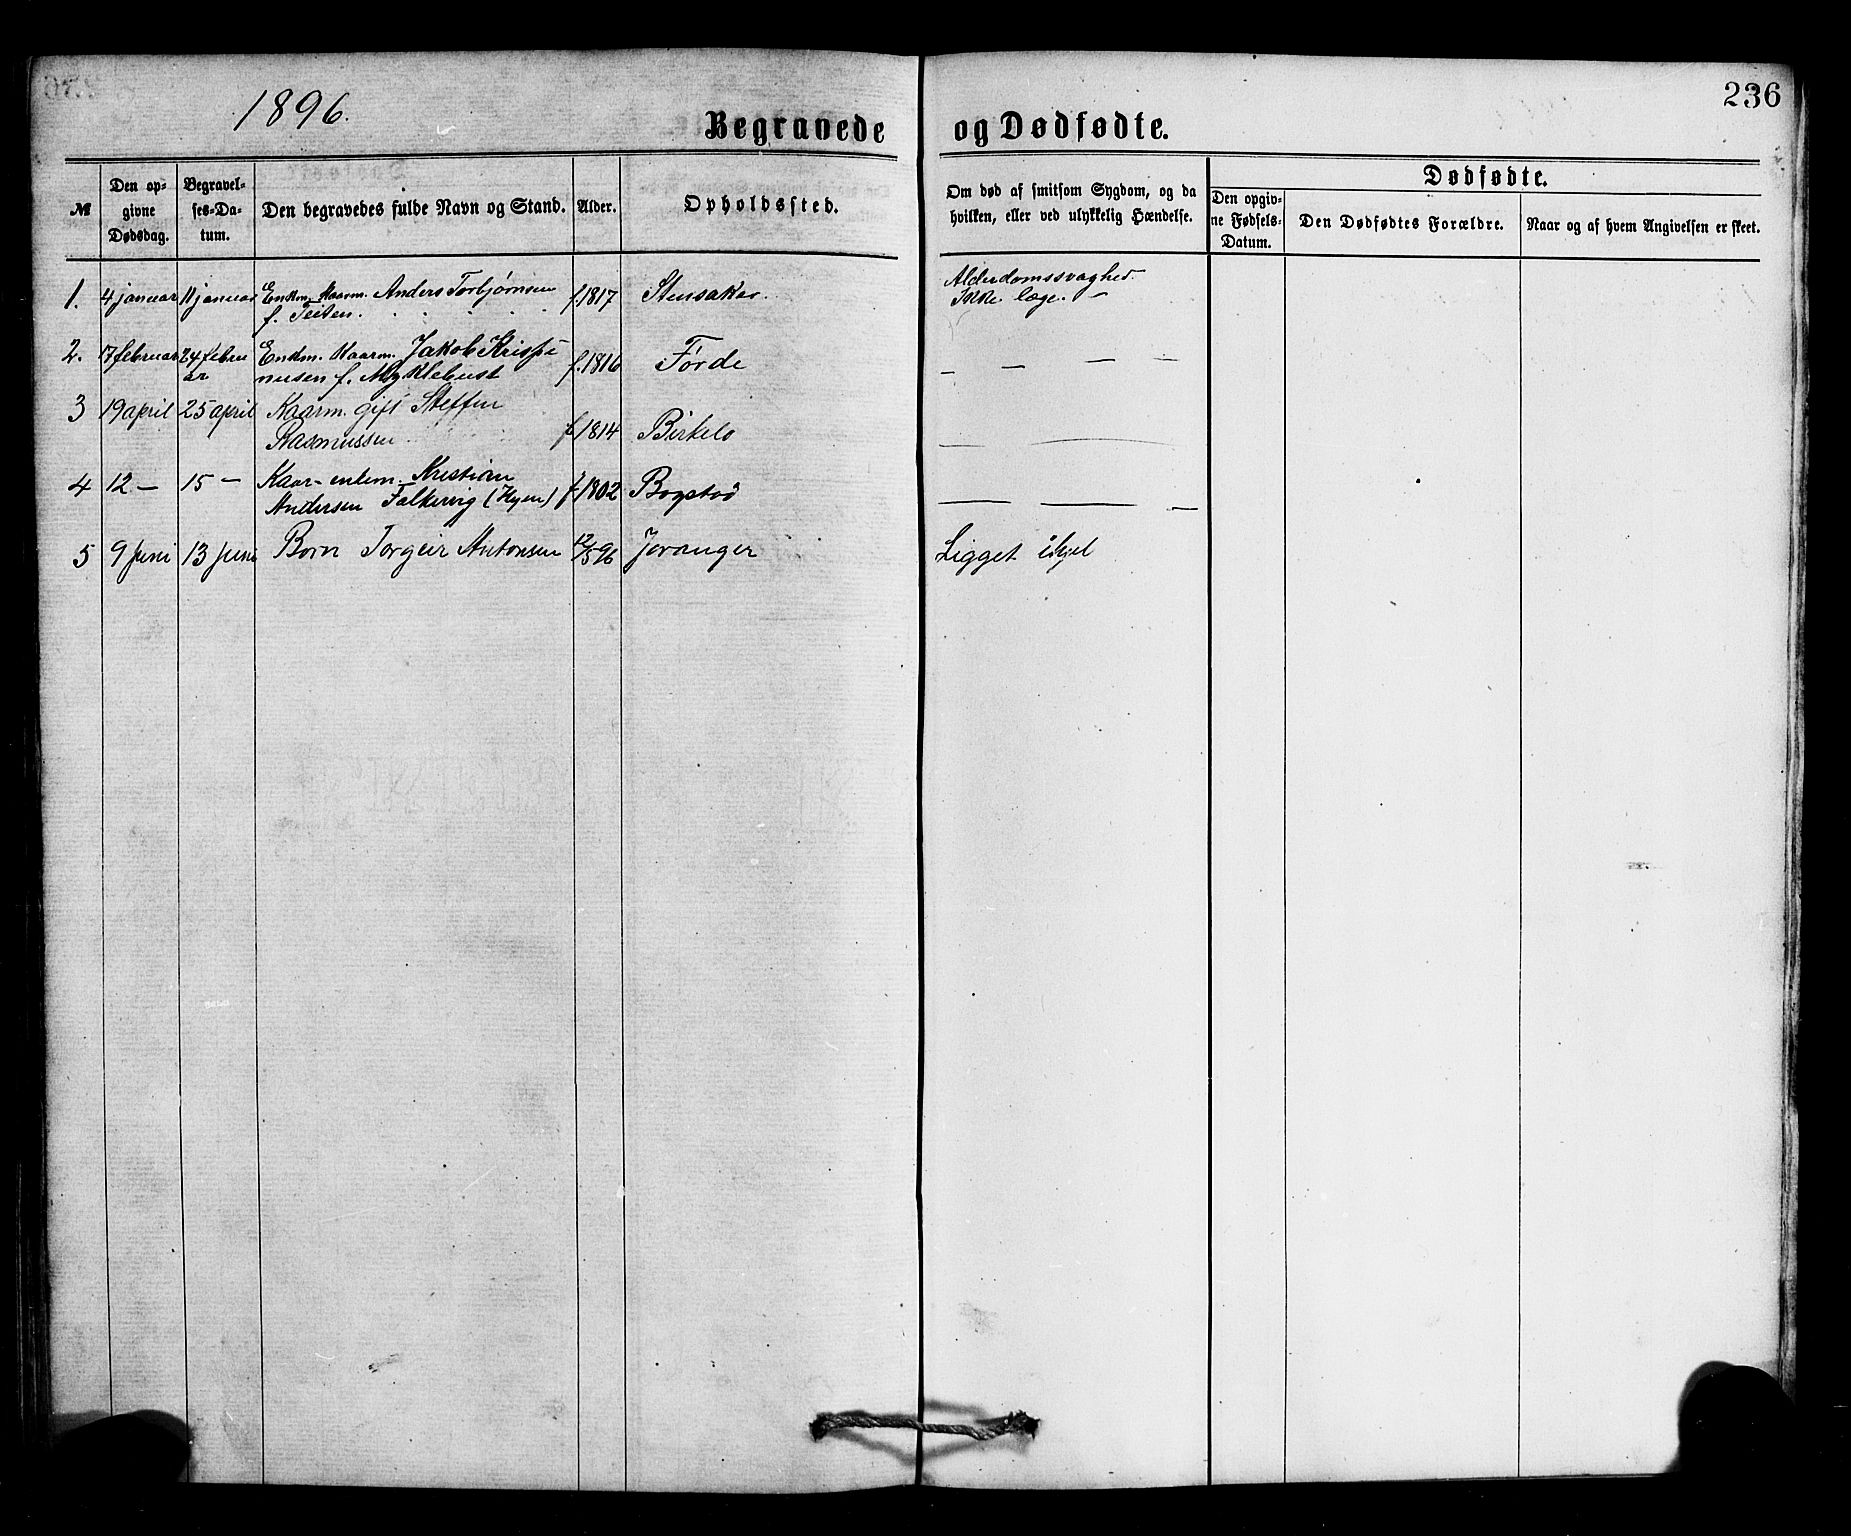 236
1896.
Begravede og Dødfødte.
№
Den op-
givne
Dødsdag.
Begravel-
ses-Da-
tum.
Den begravedes fulde Navn og Stand.
Alder.
Opholdssted.
Om død af smitsom Sygdom, og da
hvilken, eller ved ulykkelig Hændelse.
Dødfødte.
Den opgiv-
ne Fødsels-
Datum.
Den Dødfødtes Forældre.
Naar og af hvem Angivelsen er skeet.
1. 4 januar 11 januar Enkm. Kaarm. Anders Torbjørnsen f. 1817 Stensaker. Alderdomssvaghed.
f. Teiten. Ikke læge. —
2. 17 februar 24 febru Enkm. Kaarm. Jakob Krispi f. 1816 Førde — — — —
ar nusen f. Myklebust
3 19 april 25 april Kaarm. gift Steffen
Rasmussen f. 1814 Birkelo — —
4 12 — 15 — Kaar-enkem. Kristian
Andersen (Hyen) f. 1802 — — —
5 9 juni 13 juni Barn Torgeir Antonsen 12/5 96 Joranger Ligget ihjel